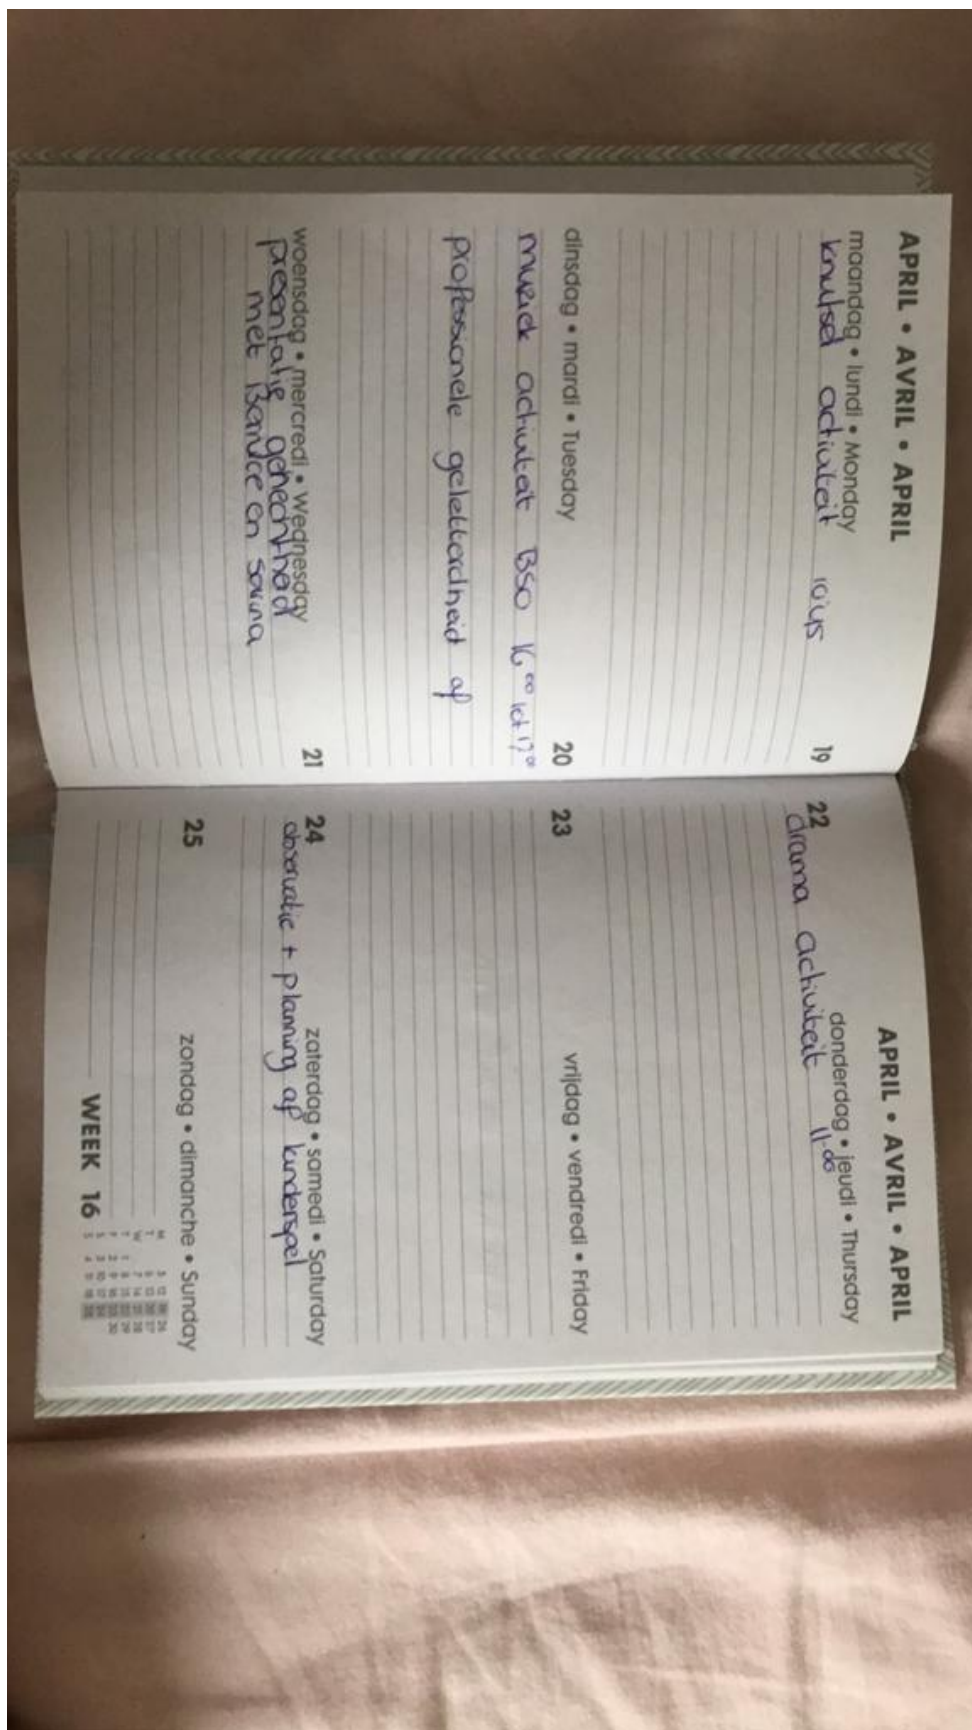 APRIL • AVRIL • APRIL
maandag • lundi • Monday
knutsel activiteit 10:45
19
dinsdag • mardi • Tuesday
20
muziek activiteit BSO 16.00 tot 17.00
professionele geletterdheid af
woensdag • mercredi • Wednesday
21
presentatie gehechtheid
met Bernice en Sarina
APRIL • AVRIL • APRIL
donderdag • jeudi • Thursday
22
drama activiteit 11.00
vrijdag • vendredi • Friday
23
zaterdag • samedi • Saturday
24
observatie + planning af kinderspel
zondag • dimanche • Sunday
25
WEEK 16
M 5 12 19 26
T 6 13 20 27
W 7 14 21 28
T 1 8 15 22 29
F 2 9 16 23 30
S 3 10 17 24
S 4 11 18 25